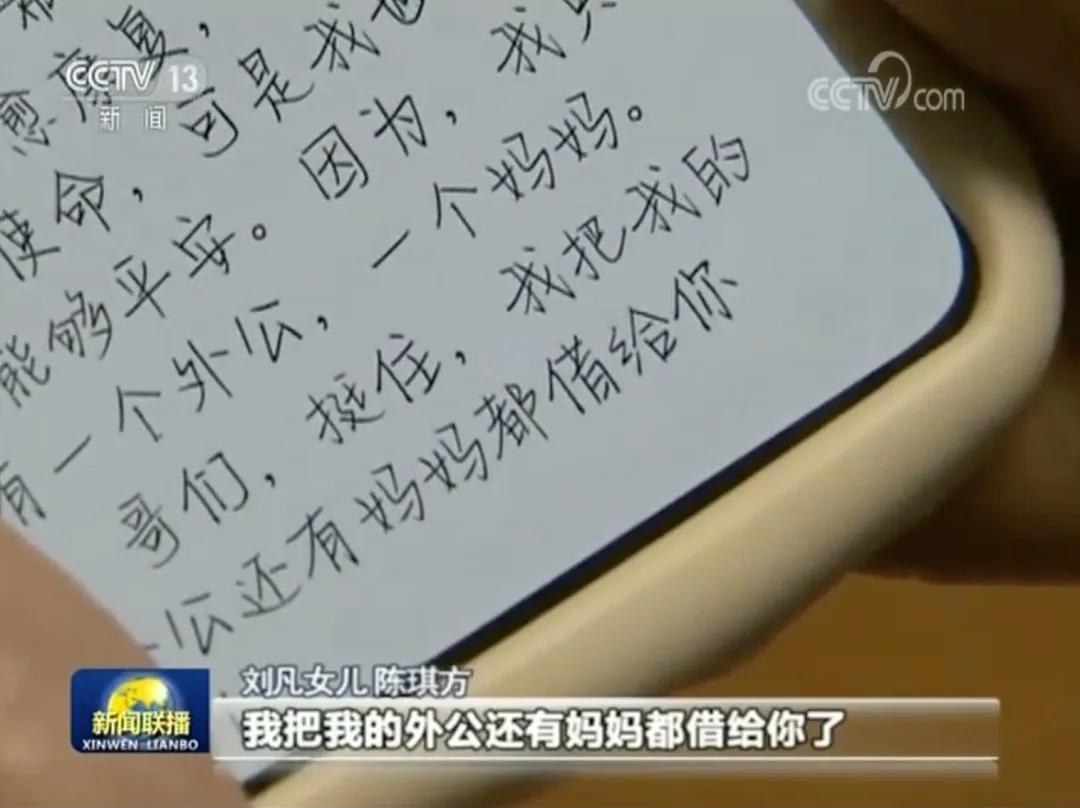 CCTV 13
新闻
CCTV.com
愈
使命，可是我也
能够平安。因为，我只
有一个外公，一个妈妈。
哥们，挺住，我把我的
外公还有妈妈都借给你
刘凡女儿 陈琪方
新闻联播
XINWEN LIANBO
我把我的外公还有妈妈都借给你了